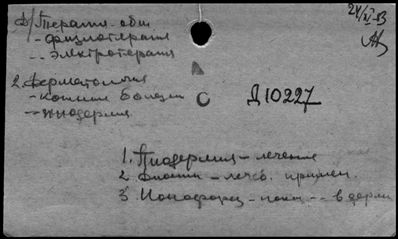 Д/Терапия-общ
- физиотерапия
-- электротерапия
2. Дерматология
- кожные болезни
-- пиодермия
Д10227
1. Пиодермия - лечение
2. - лечеб. примен.
3. Ионофорез - -- в дерм